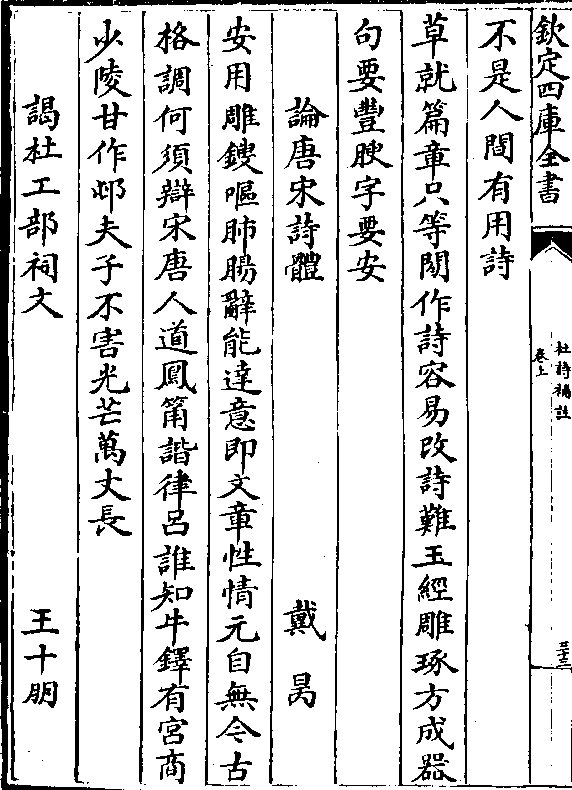 欽定四庫全書
杜詩補註
卷上
三十三
不是人間有用詩
草就篇章只等閒作詩容易改詩難玉經雕琢方成器
句要豐腴字要安
論唐宋詩體 戴昺
安用雕鎪嘔肺腸辭能達意即文章性情元自無今古
格調何須辯宋唐人道鳳筩諧律呂誰知牛鐸有宮商
少陵甘作邨夫子不害光芒萬丈長
謁杜工部祠文 王十朋